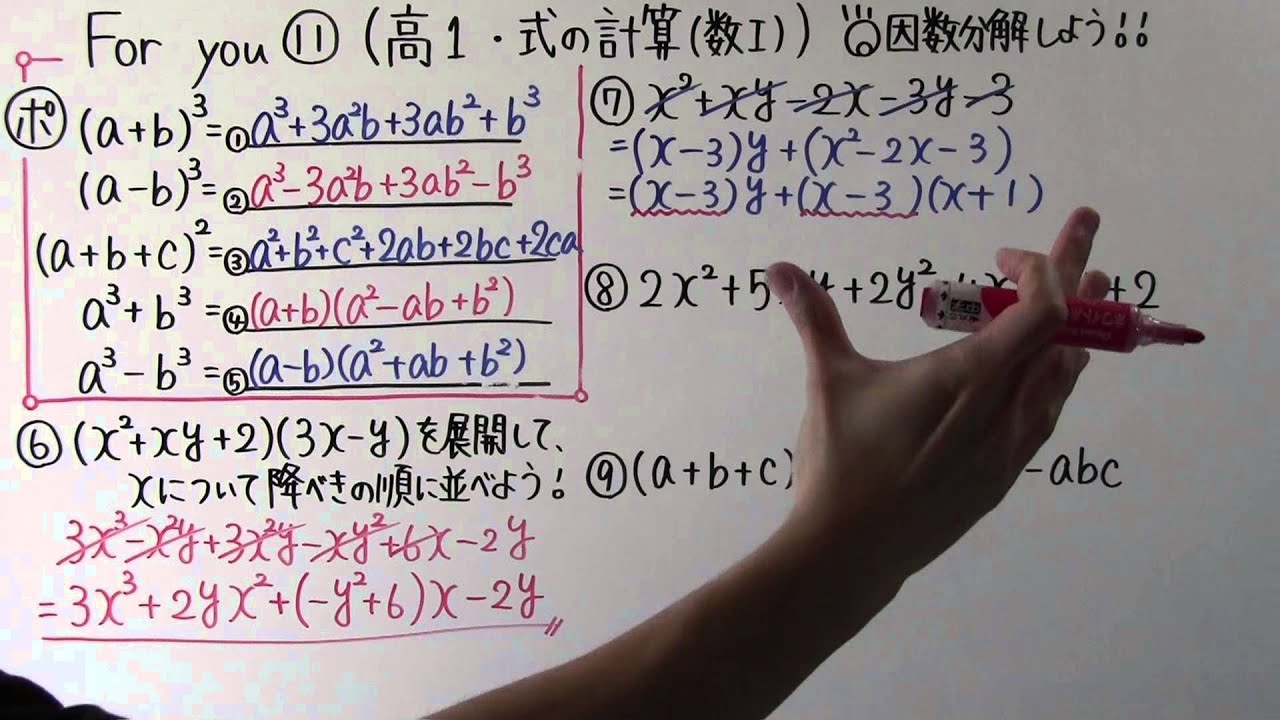 For you ⑪ (高1・式の計算(数I)) 因数分解しよう!!
ポ (a+b)³=①a³+3a²b+3ab²+b³
(a-b)³=②a³-3a²b+3ab²-b³
(a+b+c)²=③a²+b²+c²+2ab+2bc+2ca
a³+b³=④(a+b)(a²-ab+b²)
a³-b³=⑤(a-b)(a²+ab+b²)
⑥(x²+xy+2)(3x-y)を展開して、
xについて降べきの順に並べよう!
3x³-x²y+3x²y-xy²+6x-2y
=3x³+2yx²+(-y²+6)x-2y
⑦x²+xy-2x-3y-3
=(x-3)y+(x²-2x-3)
=(x-3)y+(x-3)(x+1)
⑧2x²+5 y+2y² +2
⑨(a+b+c) -abc